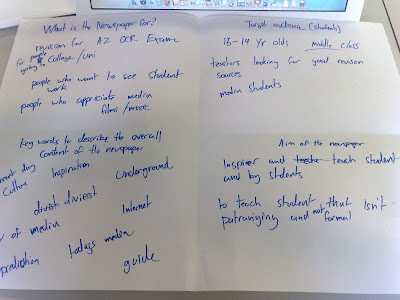 What is the Newspaper for?
revision for A2 OCR Exams
for people
going to College/Uni
people who want to see student
work
people who appriciate media
films/music
Key words to describe the overall
content of the newspaper
day Inspiration Underground
Culture
Internet
of media
todays media
prediction
guide
Target audience (students)
16-19 yr olds middle class
teachers looking for good revision
sources
media students
Aim of the newspaper
Inspire and teach student
and by students
to teach student that isn't
patronising and not formal